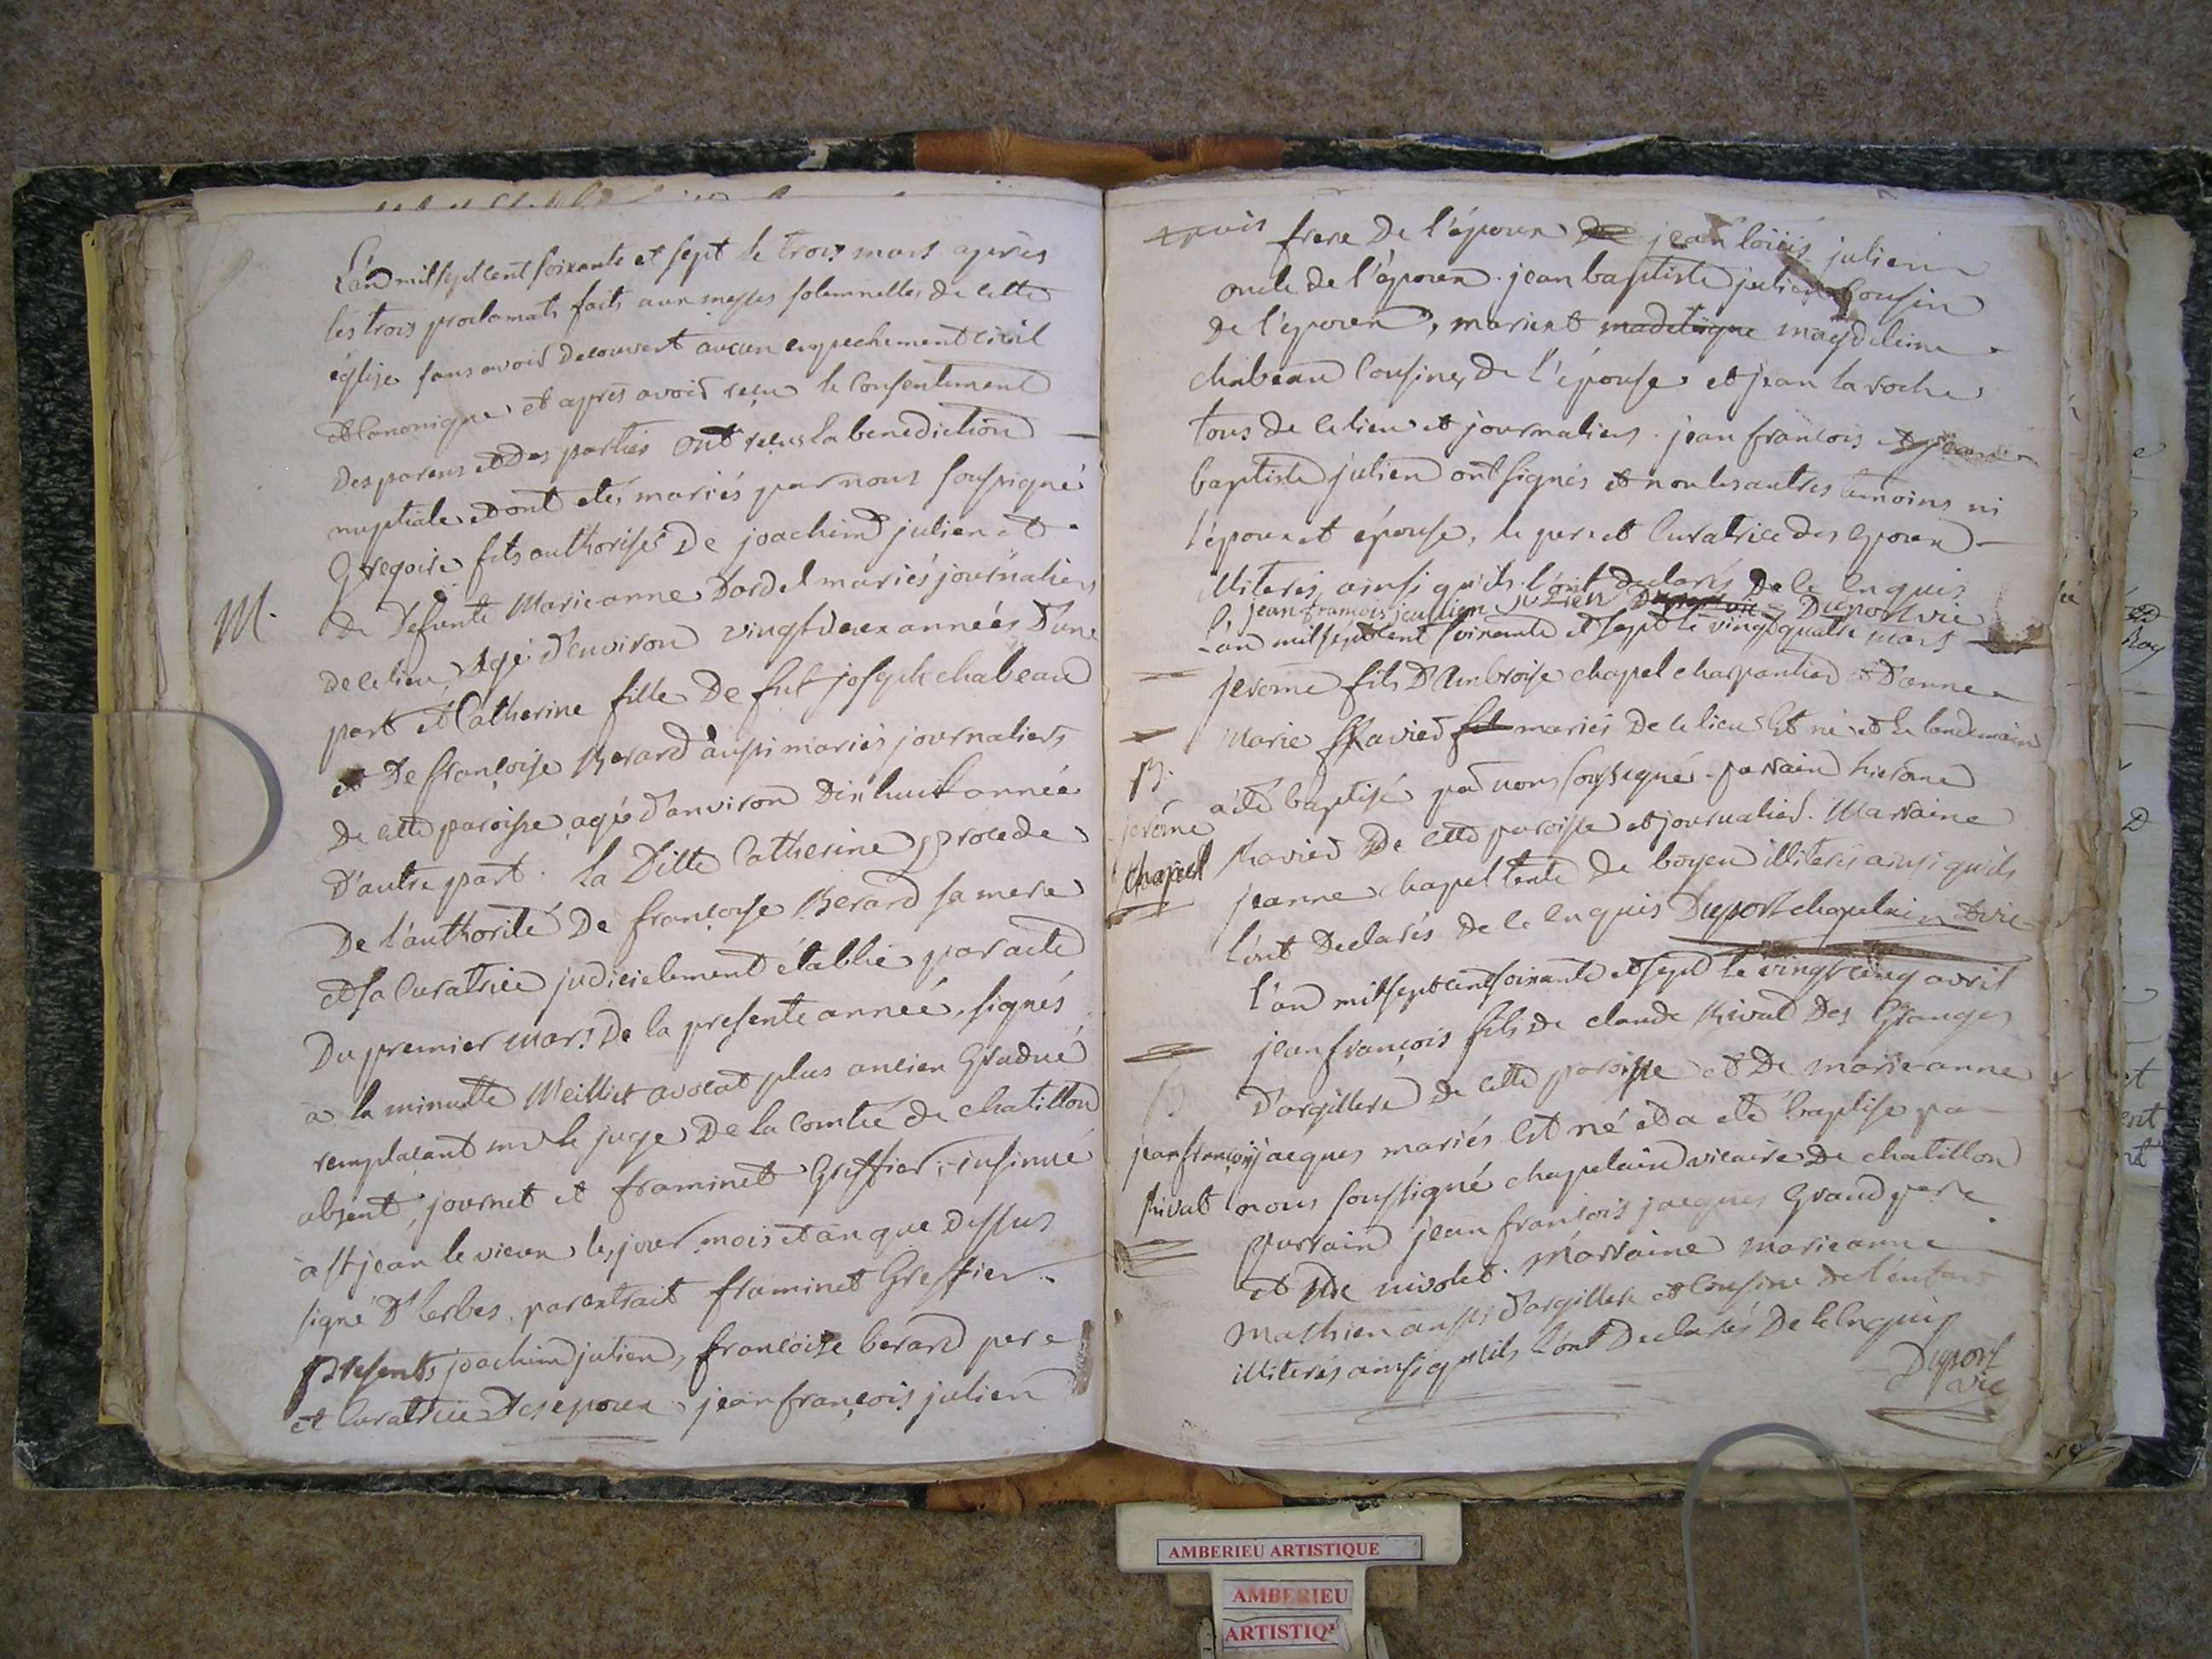 L'an mil sept cent soixante et sept le trois mars après
les trois proclamats faits aux messes solemnelles de cette
église sans avoir decouvert aucun empechement civil
et Canonique et après avoir reçu le Consentement
des parens et des parties ont reçus la benediction
nuptiale et ont etés mariés par nous soussigné
Gregoire fils authorisé de joachim julien et
M.
de defunte Marieanne Dardel mariés journaliers
de ce lieu, agé d'environ vingt deux années d'une
part et Catherine fille de fut joseph chabeau
et de françoise Berard aussi mariés journaliers
de cette paroisse agée d'environ dix huit année
d'autre part. la ditte Catherine procede
de l'authorité de françoise Berard sa mere
et sa Curatrice judicielement établie par acte
du premier mars de la presente année, signés
a la minutte Meilliet avocat plus ancien Gradué
remplacant mr le juge de la Comté de chatillon
absent, journet et framinet Greffier, insinué
a st jean le vieux les jour mois et an que dessus
signé D'herbes. par extrait framinet Greffier.
Presents joachim julien, françoise berard pere
et Curatrice des epoux jean françois julien
frere de l'époux jean loüis julien
oncle de l'époux. jean baptiste julien Cousin
de l'époux, marie et madelaigne magdeleine
chabeau Cousines de l'épouse et jean laroche
tous de ce lieu et journaliers. jean françois et jean
baptiste julien ont signés et non les autres temoins ni
l'époux et épouse, le pere et Curatrice des epoux
illiterés ainsi qu'ils l'ont declarés de ce enquis
jean françois jeullien julien Duport vic
L'an mil sept cent soixante et sept le vingt quatre mars
jerome fils d'Ambroise chapel charpantier et d'anne
Marie Ravier mariés de ce lieu est né et le landemain
B.
a été baptisé par nous soussigné. parrain hierome
jerôme
Ravier de cette paroisse et journalier. Marraine
chapel
jeanne chapel tente de boyeu illiterés ainsi qu'ils
l'ont declarés de ce enquis Duport chapelain et vic
l'an mil sept cent soixante et sept le vingt cinq avril
jean françois fils de claude Rivat des Granges
B
d'argillere de cette paroisse et de marie anne
jean françois
jacques mariés est né et a eté baptisé par
Rivat
nous soussigné chapelain vicaire de chatillon
parrain jean françois jacques Grand pere
et de nivolet. Marraine marieanne
mathieu aussi d'argillere et Cousine de l'enfant
illiterés ainsi qu'ils l'ont declarés de ce enquis
Duport
vic
AMBERIEU ARTISTIQUE
AMBERIEU
ARTISTIQ